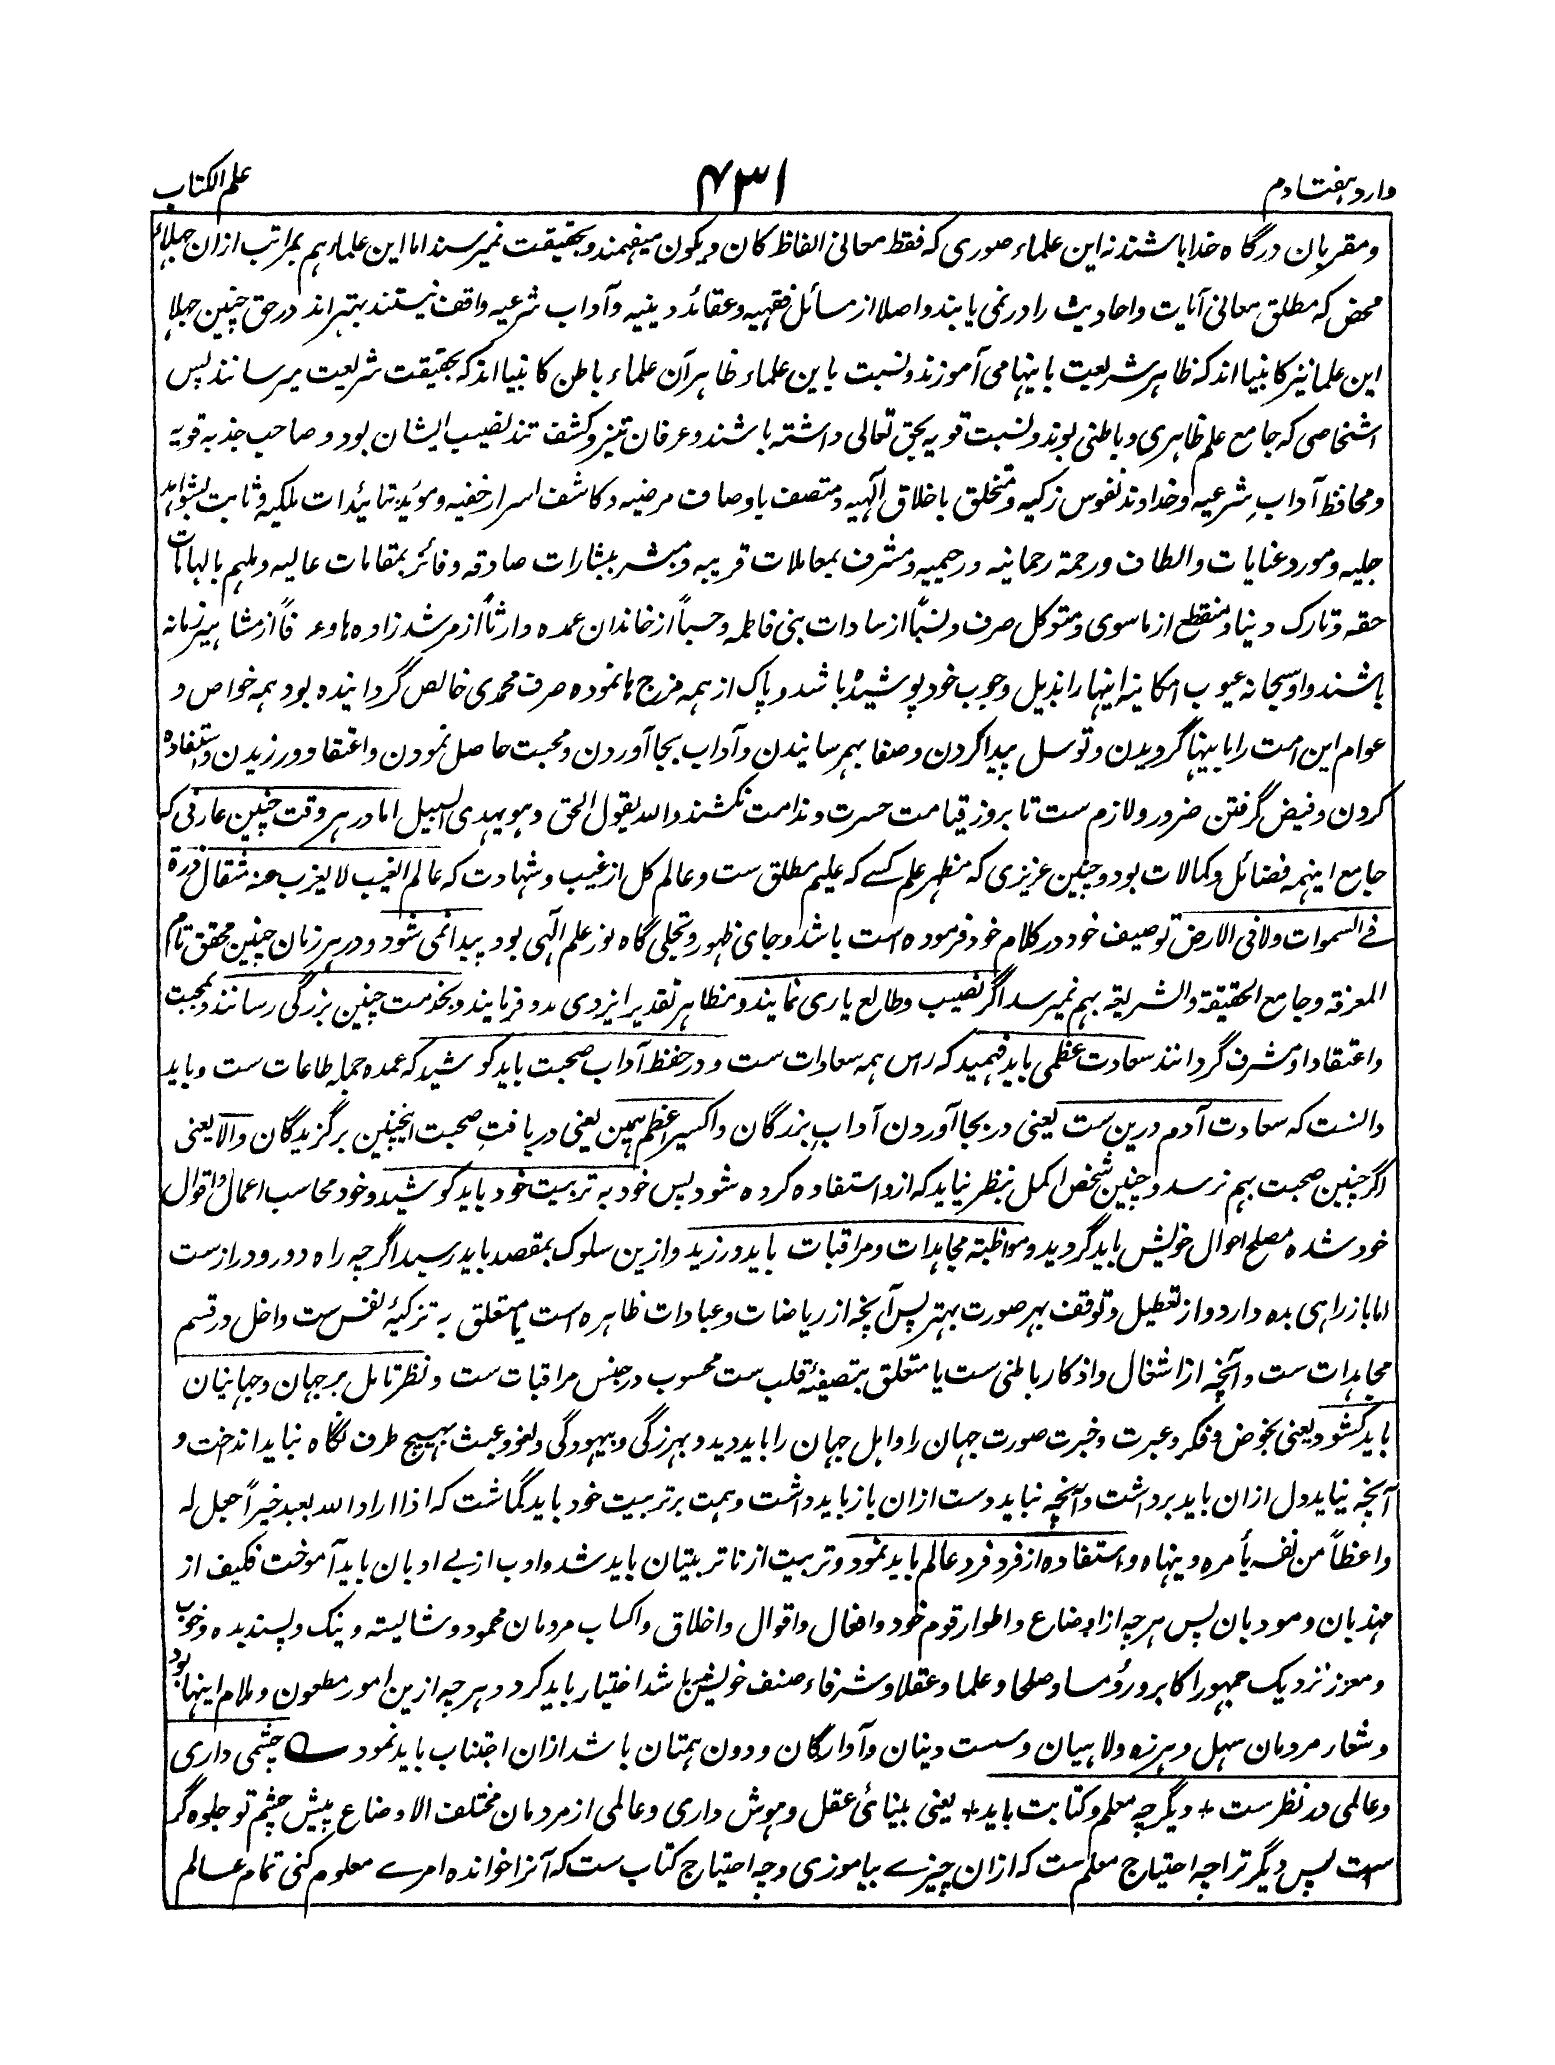 وارد هفتادم
۴۳۱
علم الکتاب
و مقربان درگاه خدا باشند نہ این علماء صوری که فقط معانی الفاظ کان و یکون میفهمند و بحقیقت نمیرسند اما این علماء هم بمراتب ازان جهلاء
محض که مطلق معانی آیات و احادیث را در نمی یابند و اصلا از مسائل فقهیه و عقائد دینیه و آداب شرعیه واقف نیستند بهتر اند در حق چنین جهلا
این علما نیز کانبیا اند که ظاهر شریعت باینها می آموزند و نسبت باین علماء ظاهر آن علماء باطن کانبیا اند که بحقیقت شریعت میرسانند پس
اشخاصی که جامع علم ظاهری و باطنی بوند و نسبت قویه بحق تعالی داشته باشند و عرفان تیز و کشف تند نصیب ایشان بود و صاحب جذبه قویه
و محافظ آداب شرعیه و خداوند نفوس زکیه و متخلق باخلاق الٓهیه و متصف باوصاف مرضیه و کاشف اسرار خفیه و موید بتائیدات ملکیه و ثابت بشواهد
جلیه و مورد عنایات و الطاف و رحمة رحمانیه و رحیمیه و مشرف بمعاملات قریبه و مبشر ببشارات صادقه و فائز بمقامات عالیه و ملهم بالهامات
حقه و تارک دنیا و منقطع از ماسوی و متوکل صرف و نسباً از سادات بنی فاطمه و حسباً از خاندان عمده و ارثاً از مرشد زاده ها و عرفاً از مشاهیر زمانه
باشند و او سبحانه عیوب امکانیه اینها را بذیل وجوب خود پوشیده باشد و پاک از همه مزج ها نموده صرف محمدی خالص گردانیده بود همه خواص و
عوام این امت را باینها گرویدن و توسل پیدا کردن و صفا بهم رسانیدن و آداب بجا آوردن و محبت حاصل نمودن و اعتقاد ورزیدن و استفاده
کردن و فیض گرفتن ضرور و لازم ست تا بروز قیامت حسرت و ندامت نکشند والله یقول الحق و هو یهدی السبیل اما در هر وقت چنین عارفی که
جامع اینهمه فضائل و کمالات بود و چنین عزیزی که مظهر علم کسے که علیم مطلق ست و عالم کل از غیب و شهادت که عالم الغیب لا یعزب عنه مثقال ذرة
فے السموات ولا فی الارض توصیف خود در کلام خود فرموده است باشد و جای ظهور و تجلی گاه نور علم الٓهی بود پیدا نمی شود و در هر زمان چنین محقق تام
المعرفة و جامع الحقیقة والشریعة بهم نمیرسد اگر نصیب و طالع یاری نمایند و مظاهر تقدیر ایزدی مدد فرمایند و بخدمت چنین بزرگی رسانند و بمحبت
و اعتقاد او مشرف گردانند سعادت عظمی باید فهمید که راس همه سعادات ست و در حفظ آداب صحبت باید کوشید که عمده جمله طاعات ست و باید
دانست که سعادت آدم درین ست یعنی در بجا آوردن آداب بزرگان و اکسیر اعظم همین یعنی دریافت صحبت اینچنین برگزیدگان والا یعنی
اگر چنین صحبت بهم نرسد و چنین شخص اکمل بنظر نیاید که ازو استفاده کرده شود پس خود به تربیت خود باید کوشید و خود محاسب اعمال و اقوال
خود شده مصلح احوال خویش باید گردید و مواظبة مجاهدات و مراقبات باید ورزید و ازین سلوک بمقصد باید رسید اگرچه راه دور و دراز ست
اما باز راهی بده دارد و از تعطیل و توقف بهر صورت بهتر پس آنچه از ریاضات و عبادات ظاهره است یا متعلق به تزکیۂ نفس ست داخل در قسم
مجاهدات ست و آنچه از اشغال و اذکار باطنی ست یا متعلق بتصفیۂ قلب ست محسوب در جنس مراقبات ست و نظر تامل بر جهان و جهانیان
باید کشود یعنی بخوض و فکر و عبرت و خبرت صورت جهان را و اهل جهان را باید دید و بهرزگی و بیهودگی و لغو و عبث بهیچ طرف نگاه نباید انداخت و
آنچه نپاید دل ازان باید برداشت و آنچه نباید دست ازان باز باید داشت و همت بر تربیت خود باید گماشت که اذا اراد الله بعبد خیراً جعل له
واعظاً من نفسه یأمره وینهاه و استفاده از فرد فرد عالم باید نمود و تربیت از نا تربیتان باید شد و ادب از بے ادبان باید آموخت فکیف از
مهذبان و مودبان پس هرچه از اوضاع و اطوار قوم خود و افعال و اقوال و اخلاق و اکساب مردمان محمود و شایسته و نیک و پسندیده و خوب
و معزز نزدیک جمهور اکابر و رؤسا و صلحا و علما و عقلا و شرفاء صنف خویش باشد اختیار باید کرد و هرچه ازین امور مطعون و ملام اینها بود
و شعار مردمان سهل و هرزه و لاهیان و سست دینان و آوارگان و دون همتان باشد ازان اجتناب باید نمود ؎ چشمی داری
و عالمی در نظر ست + دیگر چه معلم و کتابت باید + یعنی بینائی عقل و هوش داری و عالمی از مردمان مختلف الاوضاع پیش چشم تو جلوه گر
است پس دیگر ترا چه احتیاج معلم ست که ازان چیزے بیاموزی و چه احتیاج کتاب ست که آنرا خوانده امرے معلوم کنی تمام عالم